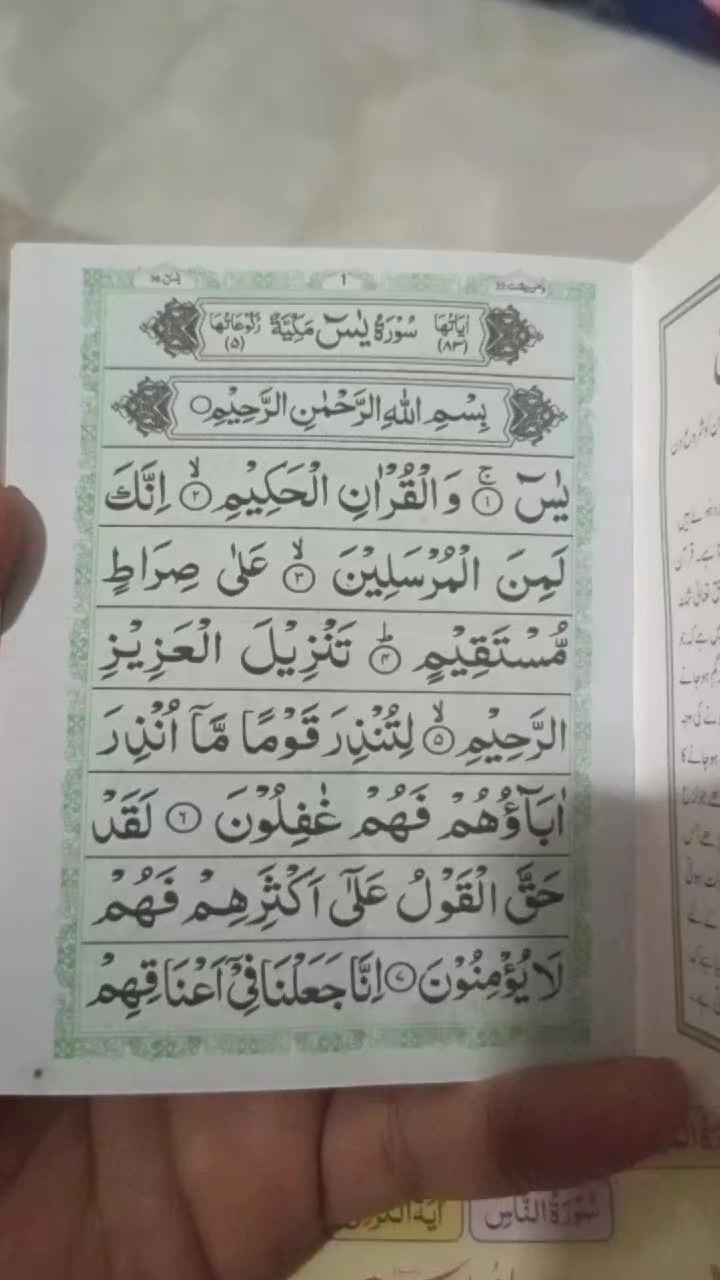 یٰسٓ 36
1
ومن یقنت 22
اٰیَاتُهَا (۸۳) سُوْرَةُ یٰسٓ مَكِّیَّةٌ رُكُوْعَاتُهَا (۵)
بِسْمِ اللّٰهِ الرَّحْمٰنِ الرَّحِیْمِ
یٰسٓ ۚ ﴿۱﴾ وَ الْقُرْاٰنِ الْحَكِیْمِ ۙ ﴿۲﴾ اِنَّكَ
لَمِنَ الْمُرْسَلِیْنَ ۙ ﴿۳﴾ عَلٰی صِرَاطٍ
مُّسْتَقِیْمٍ ؕ ﴿۴﴾ تَنْزِیْلَ الْعَزِیْزِ
الرَّحِیْمِ ۙ ﴿۵﴾ لِتُنْذِرَ قَوْمًا مَّاۤ اُنْذِرَ
اٰبَآؤُهُمْ فَهُمْ غٰفِلُوْنَ ﴿۶﴾ لَقَدْ
حَقَّ الْقَوْلُ عَلٰۤی اَكْثَرِهِمْ فَهُمْ
لَا یُؤْمِنُوْنَ ﴿۷﴾ اِنَّا جَعَلْنَا فِیْۤ اَعْنَاقِهِمْ
سُوْرَةُ النَّاسِ
اٰیَةُ الْكُرْسِیْ